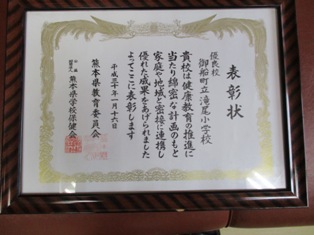 表彰状
優良校
御船町立滝尾小学校
貴校は健康教育の推進に
当たり綿密な計画のもと
家庭や地域と密接に連携し
優れた成果をあげられました
よってここに表彰します
平成三十年一月十六日
熊本県教育委員会
熊本県学校保健会